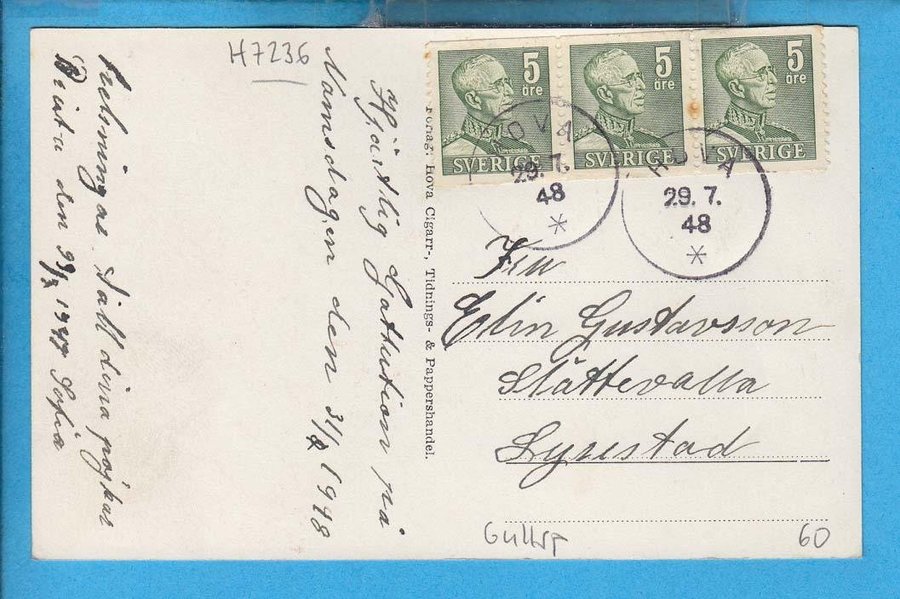 H7236
5
öre
SVERIGE
5
öre
SVERIGE
5
öre
SVERIGE
HOVA
29.7.
48
*
HOVA
29.7.
48
*
Hjärtlig Gattution på
Namsdagen den 31/7 1948
Helsningar Till dina pojkar
den 29/7 1948 Sofia
Förlag: Hova Cigarr-, Tidnings- & Pappershandel.
Fru
Elin Gustavsson
Slättevalla
Lyrestad
Gullsp
60